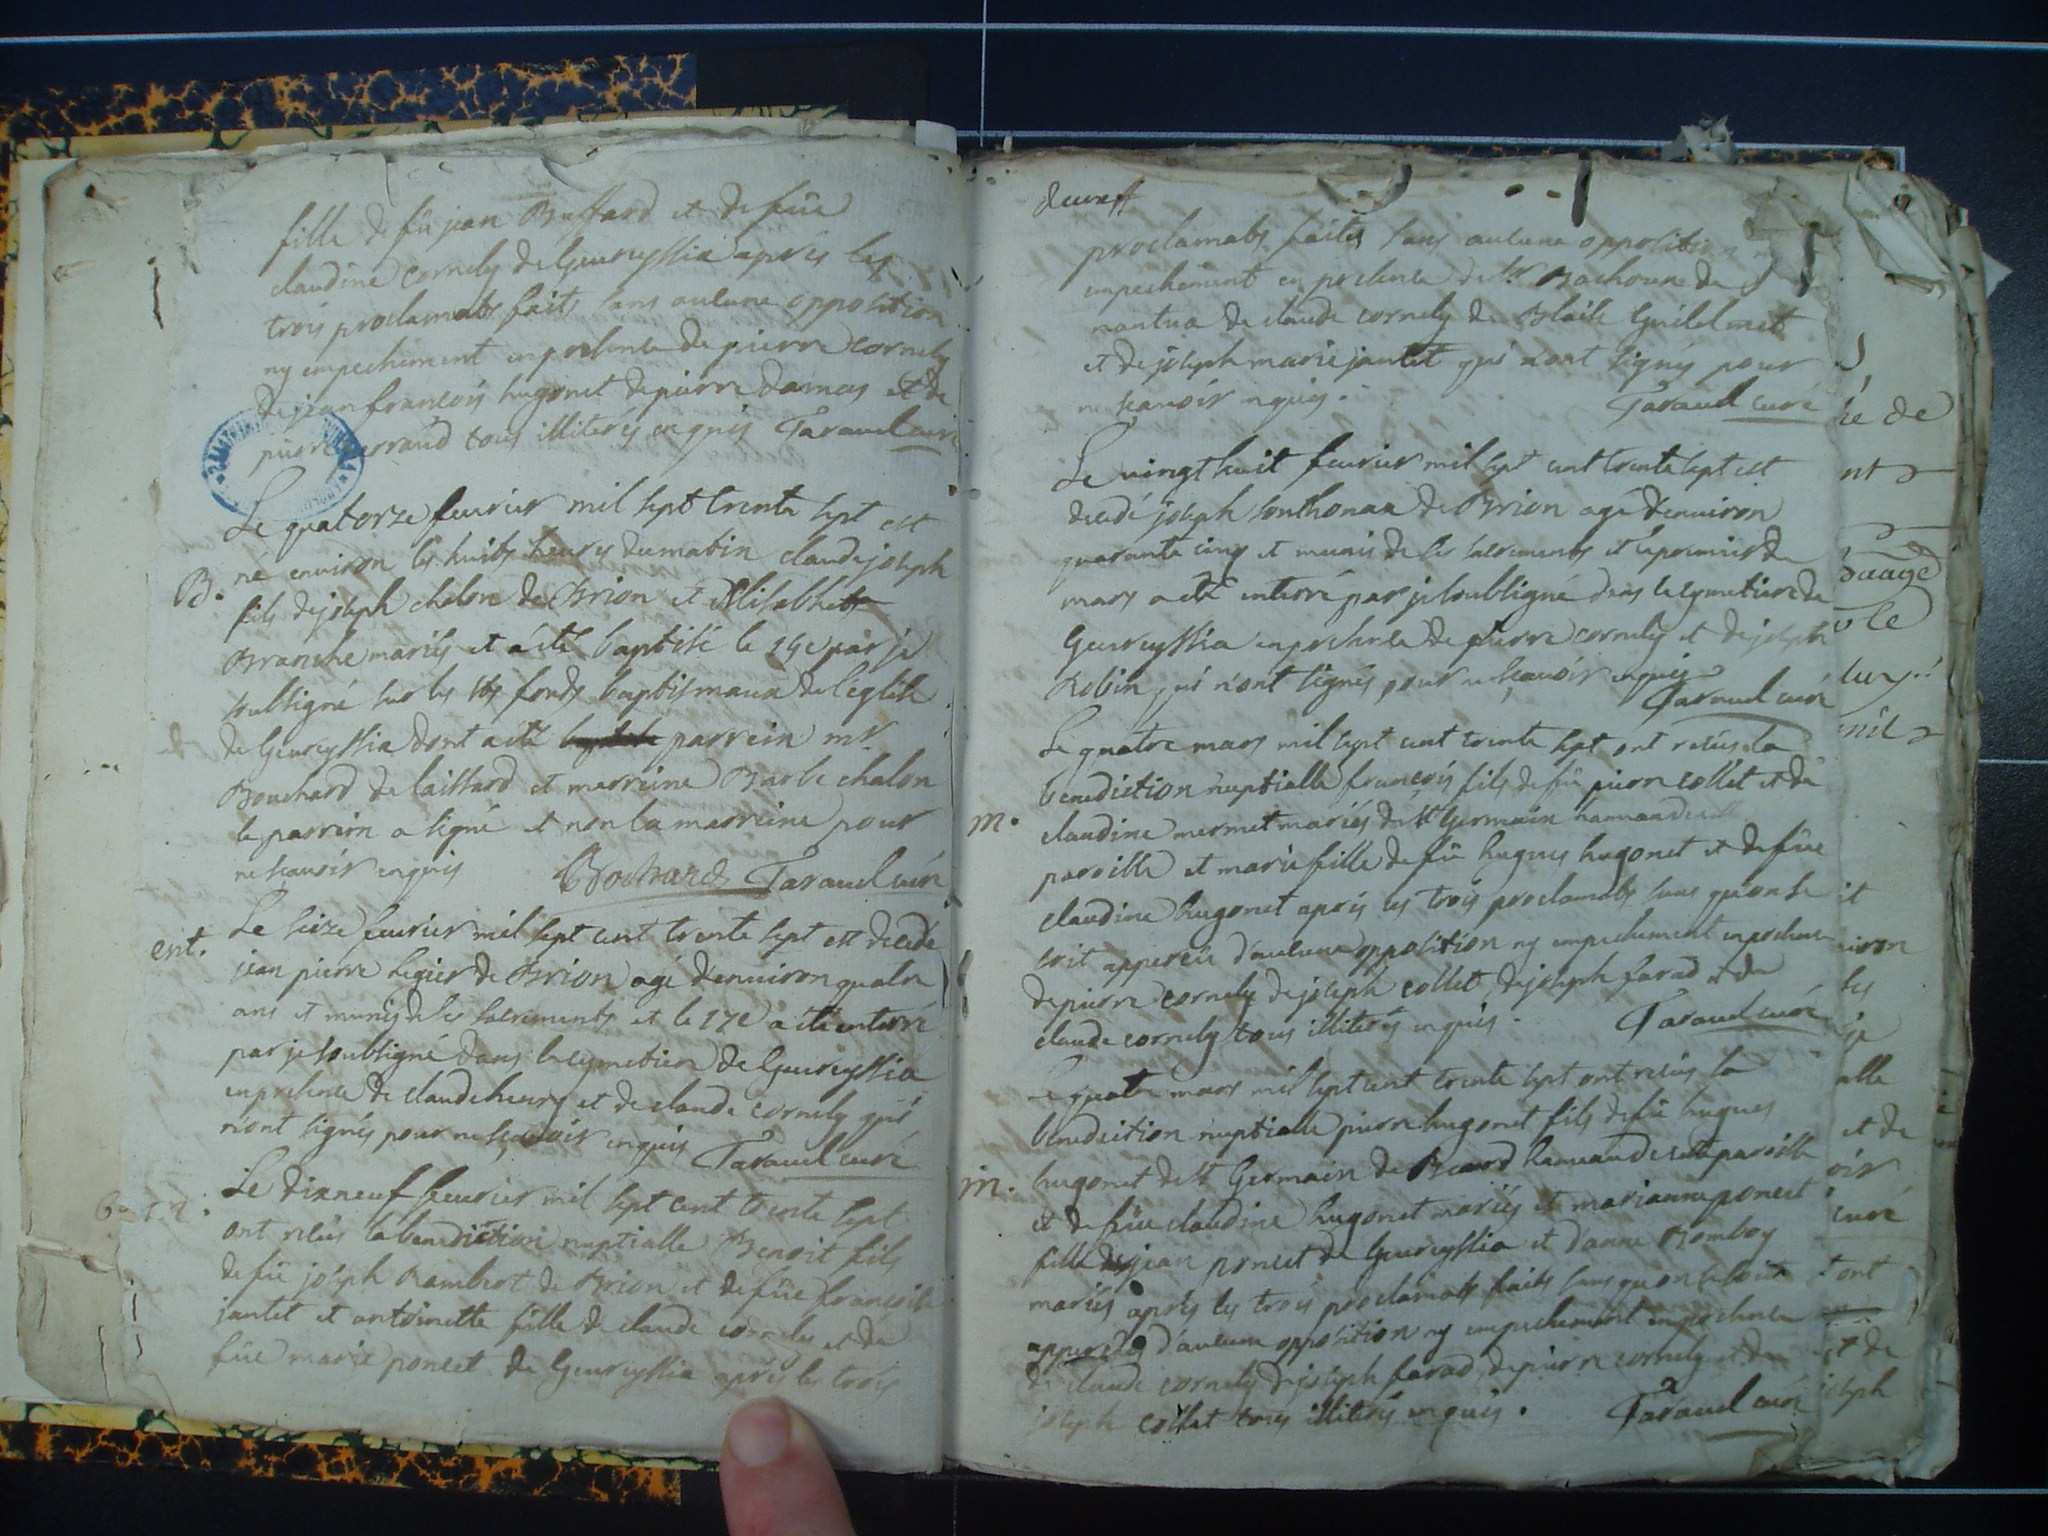 fille de fû jean Buffard et de fûe
claudine cornely de Geureyssia aprés les
trois proclamats faits sans aulcune opposition
ny empechement en presence de pierre cornely
de jean francois hugonet de pierre damas et de
pierre tous illiterés enquis Taravel curé
Le quatorze feuvrier mil sept trente sept est
B. né environ les huits heures du matin claude joseph
fils de joseph chalon de Brion et Elisabhet
Branche mariés et a été baptisé le 15e par je
soubsigné sur les sts fonds baptismaux de l'église
de Geureyssia dont a été parrein mr
Bouchard de laissard et marreine Barbe chalon
le parrein a signé et non la marreine pour
ne sçavoir enquis Bouchard Taravel curé
ent. Le seize feuvrier mil sept cent trente sept est decedé
jean pierre legier de Brion agé denviron quatre
ans et munis de ses sacrements et le 17e a été enterré
par je soubsigné dans le cymetiere de Geureyssia
en presence de claude heury et de claude cornely qui
n'ont signés pour ne sçavoir enquis Taravel curé
Le dixneuf feuvrier mil sept cent trente sept
ont reçus la benediction nuptialle Benoit fils
de fû joseph Rambert de Brion et de fûe françoise
jantet et antoinette fille de claude cornely et de
fûe marie poncet de Geureyssia aprés les trois
proclamats faits sans aulcune opposition
empechement en presence de sr Bachoux de
nantua de claude cornely de Blaise Guilelmet
et de joseph marie jantet qui n'ont signés pour
ne sçavoir enquis. Taravel curé
Le vingt huit feuvrier mil sept cent trente sept est
decedé joseph sonthonax de Brion agé d'environ
quarante cinq et munis de ses sacrements et le premier de
mars a été enterré par je soubsigné dans le cymetiere de
Geureyssia en presence de pierre cornely et de joseph
Robin qui n'ont signés pour ne sçavoir enquis
Taravel curé
Le quatre mars mil sept cent trente sept ont reçus la
benediction nuptialle francois fils de fû pierre collet et de
m. claudine mermet mariés de St Germain hameau de
paroisse et marie fille de fû hugues hugonet et de fûe
claudine hugonet aprés les trois proclamats sans qu'on se
soit apperçu d'aulcune opposition ny empechement en presence
de pierre cornely de joseph collet de joseph farad et de
claude cornely tous illiterés enquis. Taravel curé
Le quatre mars mil sept cent trente sept ont reçus la
benediction nuptialle pierre hugonet fils de fû hugues
m. hugonet de St Germain de Beard hameau de cette paroisse
et de fûe claudine hugonet mariés et marianne poncet
fille de jean poncet de Geureyssia et d'anne Romboz
mariés aprés les trois proclamats faits sans qu'on se soit
apperçu d'aulcune opposition ny empechement en presence
de claude cornely de joseph farad de pierre cornely et de
joseph collet tous illiterés enquis. Taravel curé